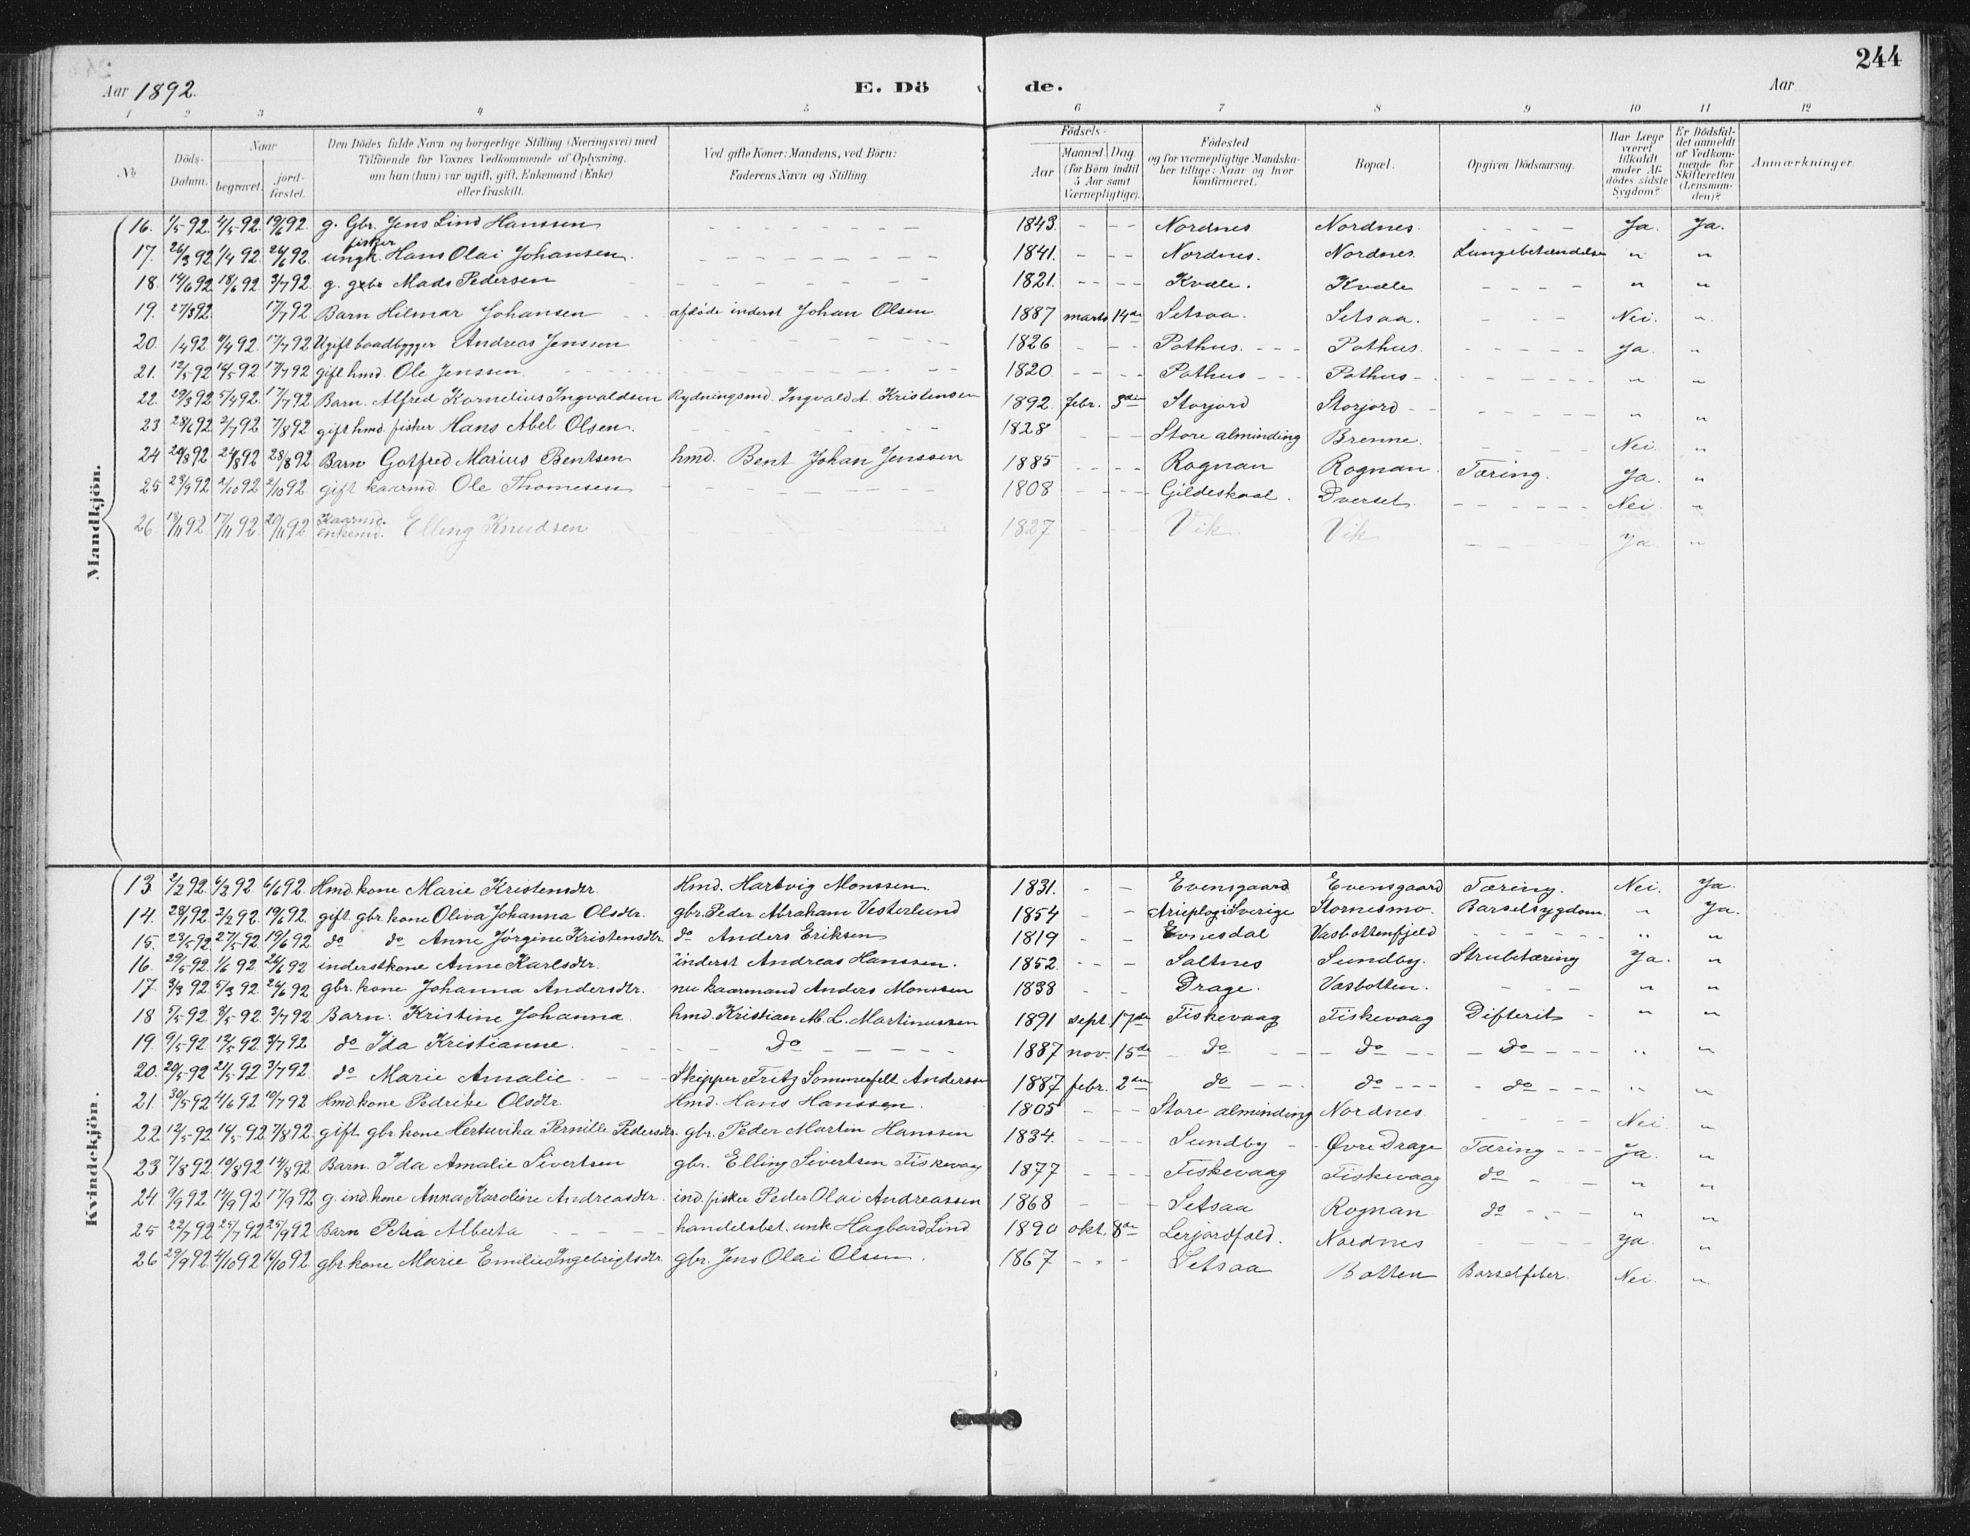 244
Aar 1892. E. Dö de. Aar
1 2 3 4 5 6 7 8 9 10 11 12
No Döds-Datum. Naar begravet. jord-fæstet. Den Dödes fulde Navn og borgerlige Stilling (Næringsvei) med Tilföiende for Voxnes Vedkommende af Oplysning, om han (hun) var ugift, gift, Enkemand (Enke) eller fraskilt. Ved gifte Koner: Mandens, ved Börn: Faderens Navn og Stilling Födsels- Aar Maaned Dag (for Börn indtil 5 Aar samt Værnepligtige). Födested og for værnepligtige Mandska-ber tillige: Naar og hvor konfirmeret. Bopæl. Opgiven Dödsaarsag. Har Læge været tilkaldt under Af-dödes sidste Sygdom? Er Dödsfal-det anmeldt af Vedkom-mende for Skifteretten (Lensman-den)? Anmærkninger.
Mandkjön.
16. 1/5 92 4/5 92. 19/6 92. g. Gbr. Jens Lind Hanssen 1843. Nordnes Nordnes. Ja. Ja.
17. 26/3 92 1/4 92 26/6 92. ungk. fisker Hans Olai Johansen. 1841. Nordnes. Nordnes Lungebetændelse " "
18. 14/6 92 18/6 92 3/7 92. g. gbr Mads Pedersen 1821. Kvæle. Kvæle " "
19. 27/3 92. 17/7 92. Barn Hilmar Johansen afdöde inderst Johan Olsen 1887 marts 14de Setsaa. Setsaa. Nei. "
20. 1/4 92 9/4 92 17/7 92 Ugift baadbygger Andreas Jenssen 1826 Pothus. Pothus. Ja. "
21. 12/5 92 16/5 92 17/7 92 gift hmd. Ole Jenssen. 1820 Pothus Pothus " "
22. 29/3 92 5/4 92. 17/7 92 Barn. Alfred Kornelius Ingvaldsen Rydningsmd. Ingvald A. Kristensen 1892. febr. 3die Storjord Storjord " "
23 28/6 92 2/7 92 7/8 92 gift hmd. fisker Hans Abel Olsen. 1828 Store alminding Brenne. Nei. "
24 20/8 92 24/8 92 28/8 92 Barn Gotfred Marius Bentsen hmd. Bent Johan Jenssen 1885 Rognan Rognan Tæring. Ja. "
25 28/9 92 2/10 92 2/10 92. gift kaarmd. Ole Thomesen 1808 Gildeskaal. Dverset. Nei. "
26. 13/11 92 17/11 92 20/11 92 Kaarmd. enkemd. Elling Knudsen 1827 Vik. Vik Ja "
Kvindekjön.
13. 2/2 92. 6/2 92. 6/6 92. Hmd. kone Marie Kristensdtr. Hmd. Hartvig Monssen. 1831. Evensgaard Evensgaard Tæring. Nei. Ja.
14. 28/1 92. 2/2 92. 19/6 92. gift. gbr. kone Oliva Johanna Olsdtr. gbr. Peder Abraham Vesterlund 1854 Arieplog i Sverige Stornesmo. Barselsygdom. " Ja.
15. 23/5 92 27/5 92 19/6 92 do do Anne Jörgine Kristensdtr. do Anders Eriksen 1819 Evnesdal Vasbottenfjeld " "
16. 29/5 92. 1/6 92 26/6 92 inderstkone Anne Karlsdtr. inderst Andreas Hanssen. 1852. Saltnes Sundby. Strubetæring Ja. "
17. 3/3 92 5/3 92 26/6 92 gbr. kone Johanna Andersdtr. nu kaarmand Anders Monssen 1838 Drage. Vasbotten. " "
18 5/5 92 8/5 92 3/7 92. Barn: Kristine Johanna hmd. Kristian M. L. Martinussen 1891 sept. 17de Fiskevaag Fiskevaag Difterit " "
19. 9/5 92 12/5 92 3/7 92 do Ida Kristianne. Do 1887 nov. 15de do do do " "
20. 20/5 92 21/5 92 3/7 92. do Marie Amalie Skipper Fritz Sommerfelt Anderssen 1887 febr. 2den do do do " "
21. 30/5 92 4/6 92 10/7 92 Hmd. kone Pedrike Olsdtr. Hmd. Hans Hanssen. 1805 Store alminding Nordnes Nei. "
22. 12/5 92 14/5 92 7/8 92. gift gbr. kone Hertuvika Pernille Pedersdtr. gbr. Peder Martin Hanssen 1834. Sundby Øvre Drage Tæring Ja. "
23 7/8 92. 10/8 92 14/8 92. Barn. Ida Amalie Sivertsen gbr. Elling Sivertsen Fiskevaag 1877 Fiskevaag Fiskevaag do " "
24. 9/9 92 14/9 92 17/9 92 g. ind. kone Anna Karoline Andreasdtr. ind. fisker Peder Olai Andreassen 1868 Setsaa Rognan do " "
25 22/7 92 25/7 92 25/9 92 Barn Petra Alberta handelsbet. unk Hagbard Lind 1890 okt. 8de Leijordfald. Nordnes Ja. "
26 29/9 92 4/10 92 16/10 92. gbr. kone Marie Emilie Ingebrigtsdtr. gbr. Jens Olai Olsen. 1867 Setsaa Botten Barselfeber. Nei. "